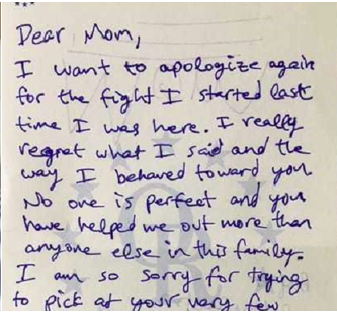 Dear Mom,
I want to apologize again
for the fight I started last
time I was here. I really
regret what I said and the
way I behaved toward you.
No one is perfect and you
have helped me out more than
anyone else in this family.
I am so sorry for trying
to pick at your very few